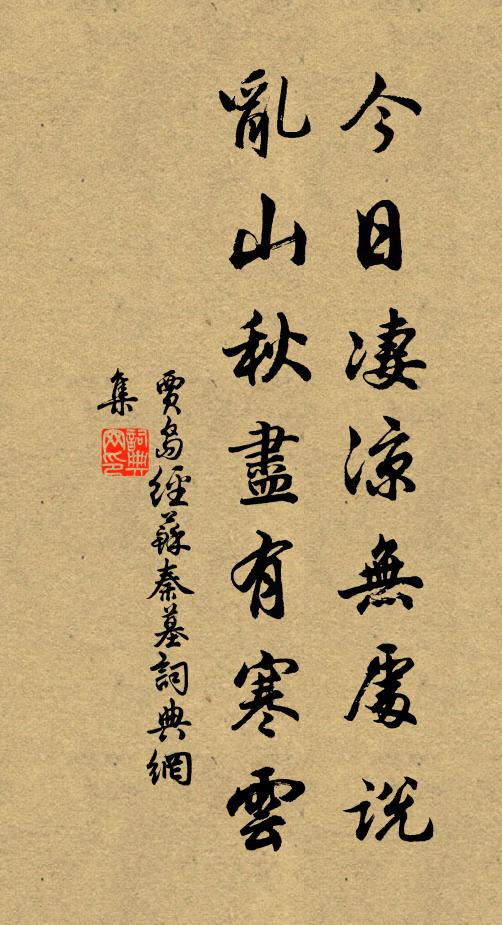 今日淒涼無處說
亂山秋盡有寒雲
賈島經蘇秦墓詞典網
集
詞典
网印